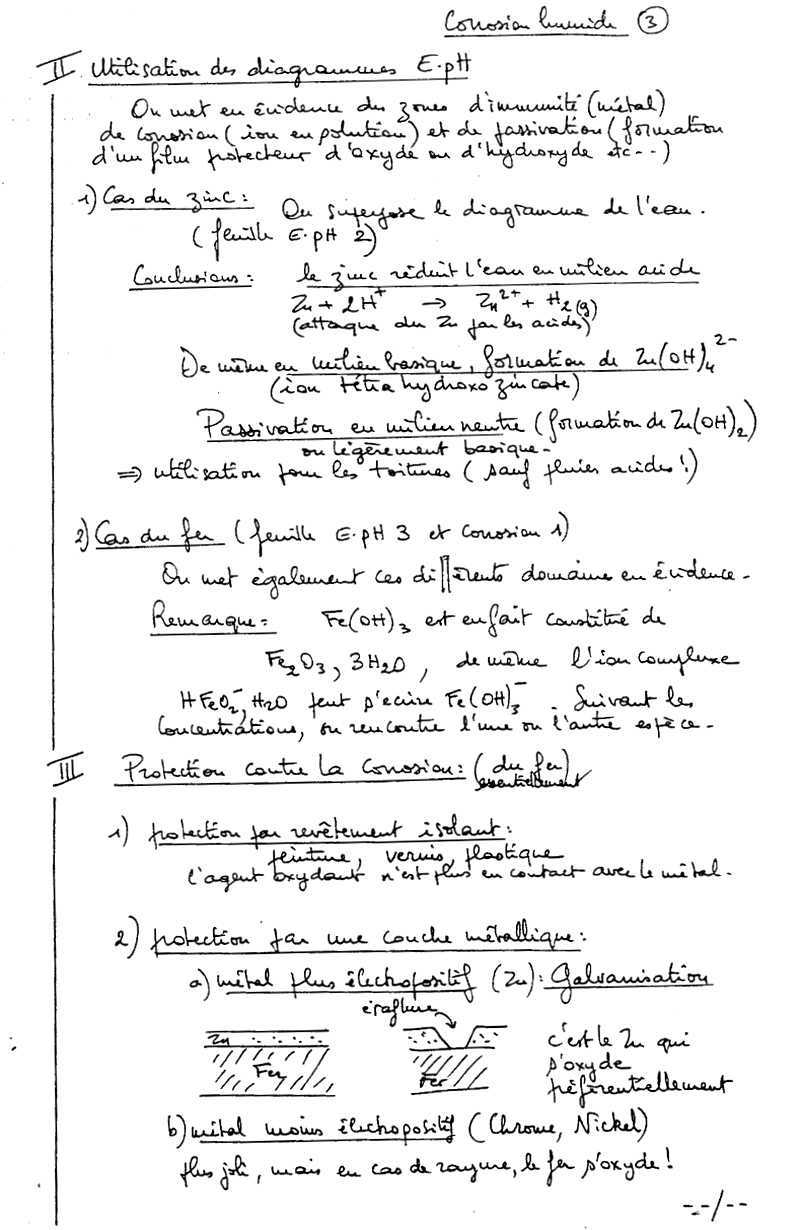 Corrosion humide ③
II Utilisation des diagrammes E-pH
On met en évidence des zones d'immunité (métal)
de corrosion (ion en solution) et de passivation (formation
d'un film protecteur d'oxyde ou d'hydroxyde etc--)
1) Cas du zinc: On superpose le diagramme de l'eau.
(feuille E-pH 2)
Conclusions: le zinc réduit l'eau en milieu acide
Zn + 2H⁺ → Zn²⁺ + H₂(g)
(attaque du Zn par les acides)
De même en milieu basique, formation de Zn(OH)₄²⁻
(ion tétra hydroxo zincate)
Passivation en milieu neutre (formation de Zn(OH)₂)
ou légèrement basique-
⇒ utilisation pour les toitures (sauf pluies acides!)
2) Cas du fer (feuille E-pH 3 et corrosion 1)
On met également ces différents domaines en évidence-
Remarque: Fe(OH)₃ est en fait constitué de
Fe₂O₃, 3H₂O, de même l'ion complexe
HFeO₂⁻, H₂O peut s'écrire Fe(OH)₃⁻. Suivant les
concentrations, on rencontre l'une ou l'autre espèce-
III Protection contre la corrosion: (du fer)
essentiellement
1) protection par revêtement isolant:
peinture, vernis, plastique
l'agent oxydant n'est plus en contact avec le métal.
2) protection par une couche métallique:
a) métal plus électropositif (Zn): Galvanisation
éraflure
Zn
Fer
Fer
c'est le Zn qui
s'oxyde
préférentiellement
b) métal moins électropositif (Chrome, Nickel)
plus joli, mais en cas de rayure, le fer s'oxyde!
--/--